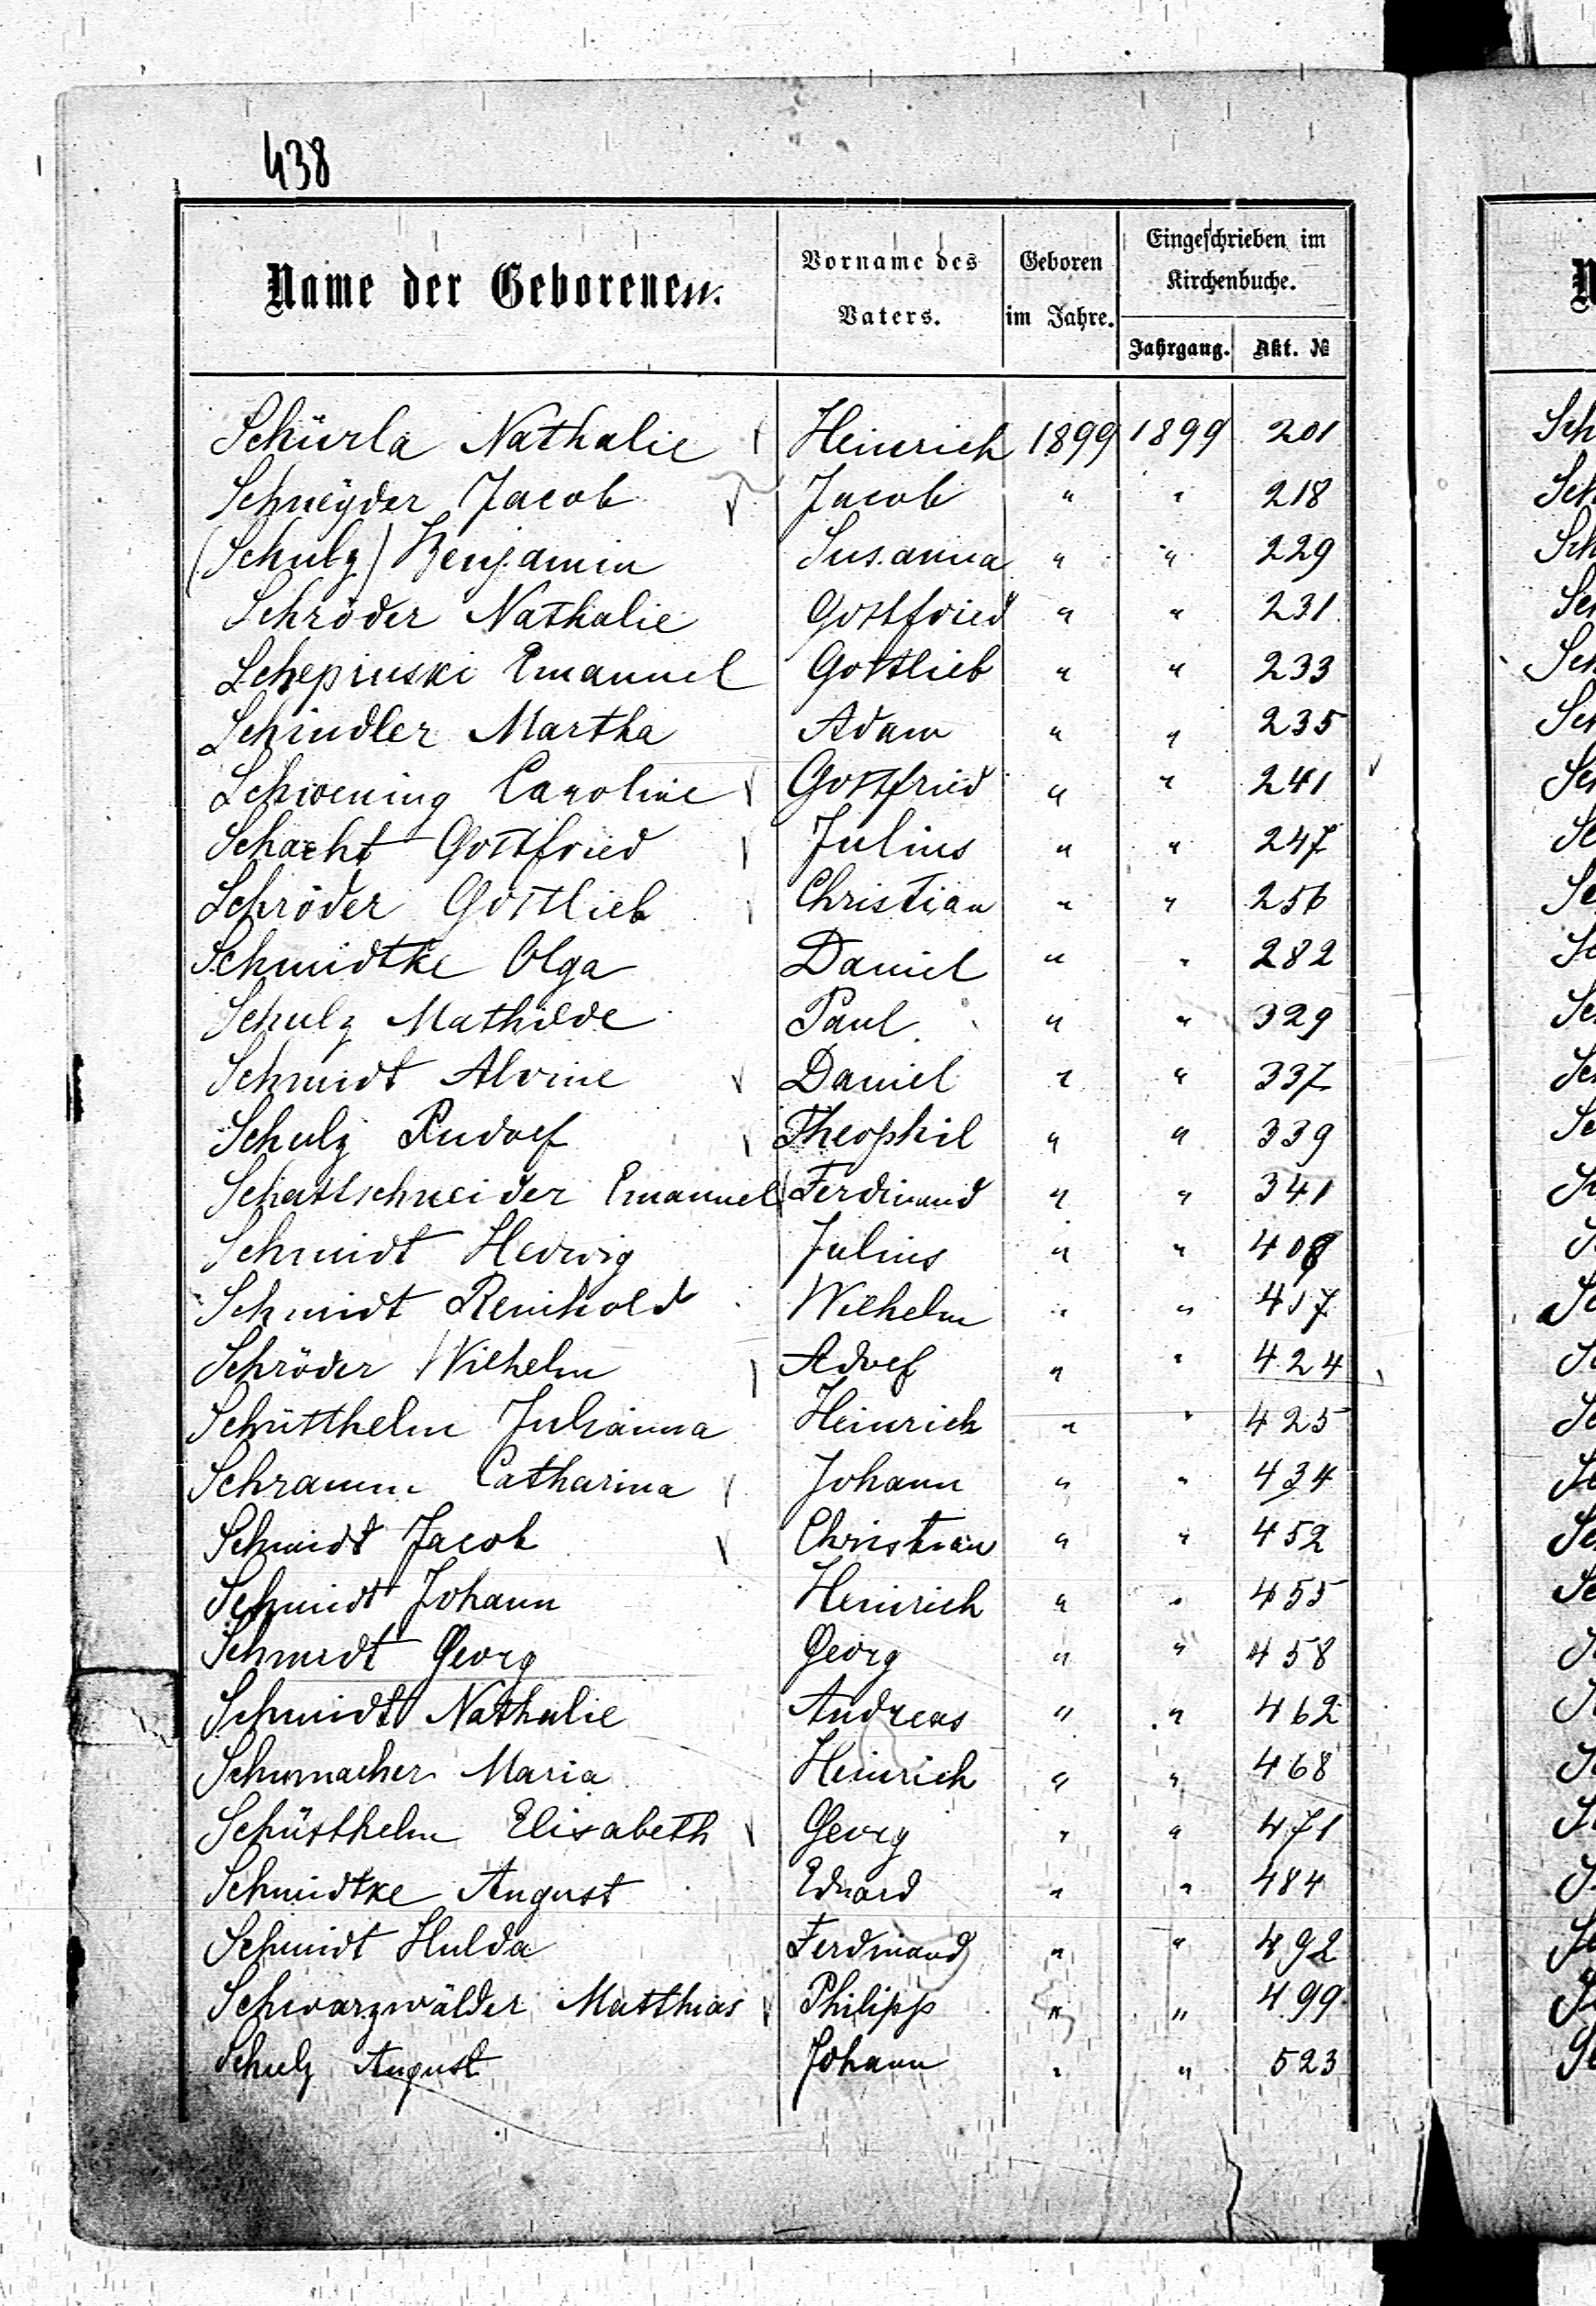 438
Name der Geborenen. Vorname des Vaters. Geboren im Jahre. Eingeschrieben im Kirchenbuche.
Jahrgang. Akt. №
Schürla Nathalie Heinrich 1899 1899 201
Schneyder Jacob Jacob " " 218
(Schulz) Benjamin Susanna " " 229
Schröder Nathalie Gottfried " " 231
Schepinski Emanuel Gottlieb " " 233
Schindler Martha Adam " " 235
Schwening Caroline Gottfried " " 241
Schacht Gottfried Julius " " 247
Schröder Gottlieb Christian " " 256
Schmidtke Olga Daniel " " 282
Schulz Mathilde Paul " " 329
Schmidt Alvine Daniel " " 337
Schulz Rudolf Theophil " " 339
Schattschneider Emanuel Ferdinand " " 341
Schmidt Hedwig Julius " " 408
Schmidt Reinhold Wilhelm " " 417
Schröder Wilhelm Adolf " " 424
Schütthelm Julianna Heinrich " " 425
Schramm Catharina Johann " " 434
Schmidt Jacob Christian " " 452
Schmidt Johann Heinrich " " 455
Schmidt Georg Georg " " 458
Schmidt Nathalie Andreas " " 462
Schumacher Maria Heinrich " " 468
Schütthelm Elisabeth Georg " " 471
Schmidtke August Eduard " " 484
Schmidt Hulda Ferdinand " " 492
Schwarzwälder Matthias Philipp " " 499
Schulz August Johann " " 523